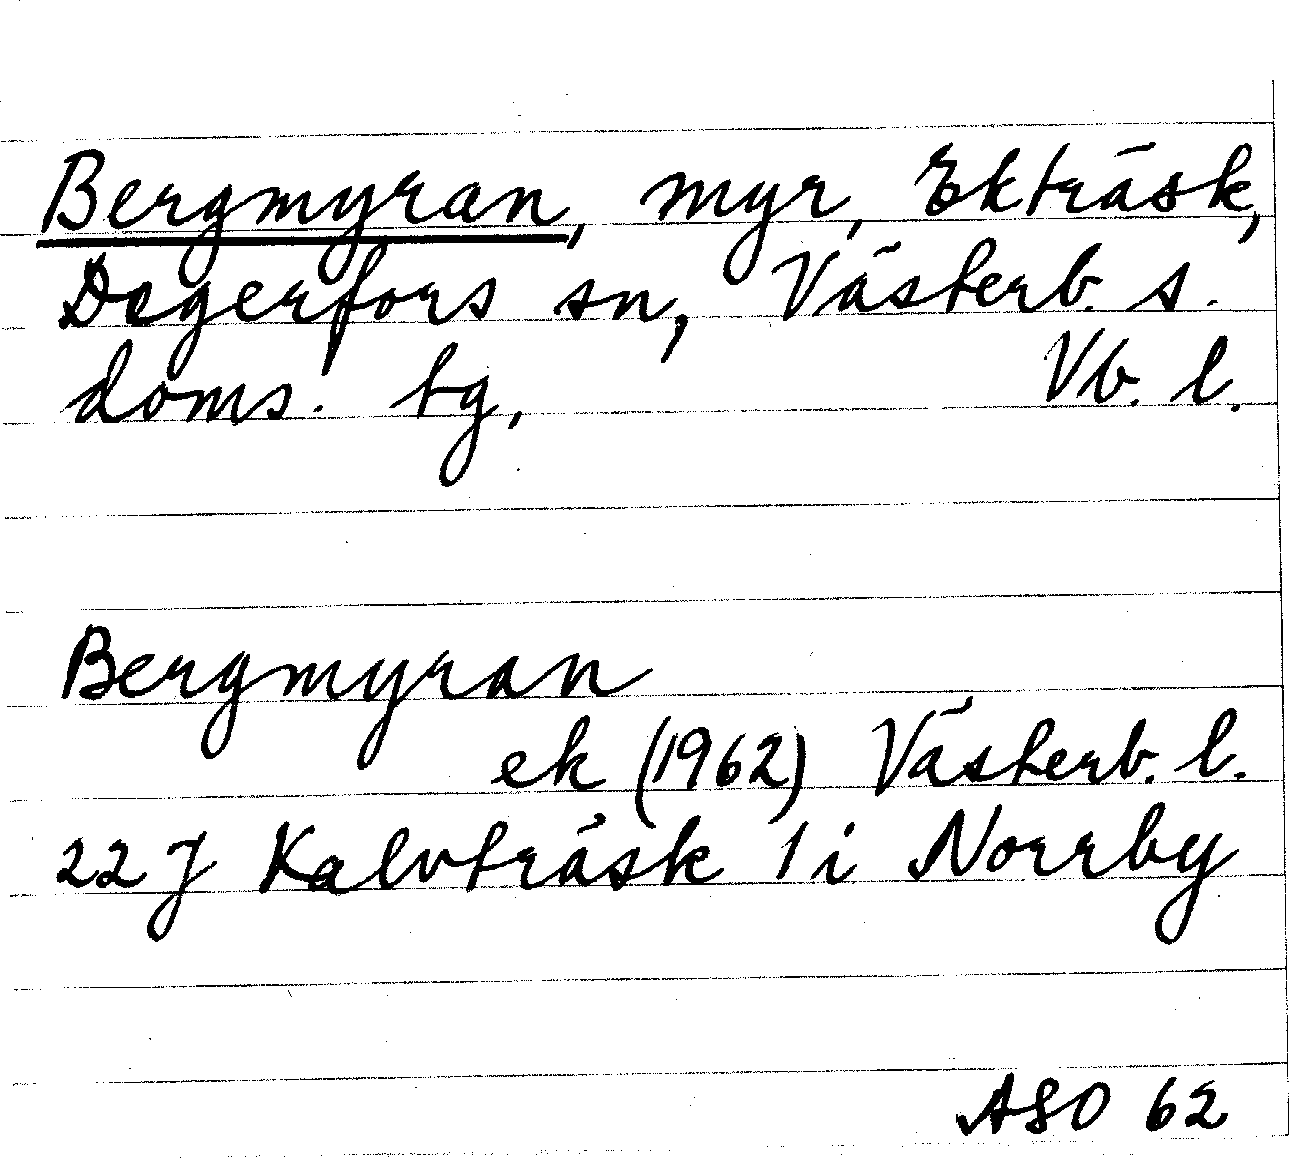 Bergmyran, myr, Ekträsk,
Degerfors sn, Västerb. s.
doms. tg, Vb. l.
Bergmyran
ek (1962) Västerb. l.
22 J Kalvträsk 1 i Norrby
ASO 62